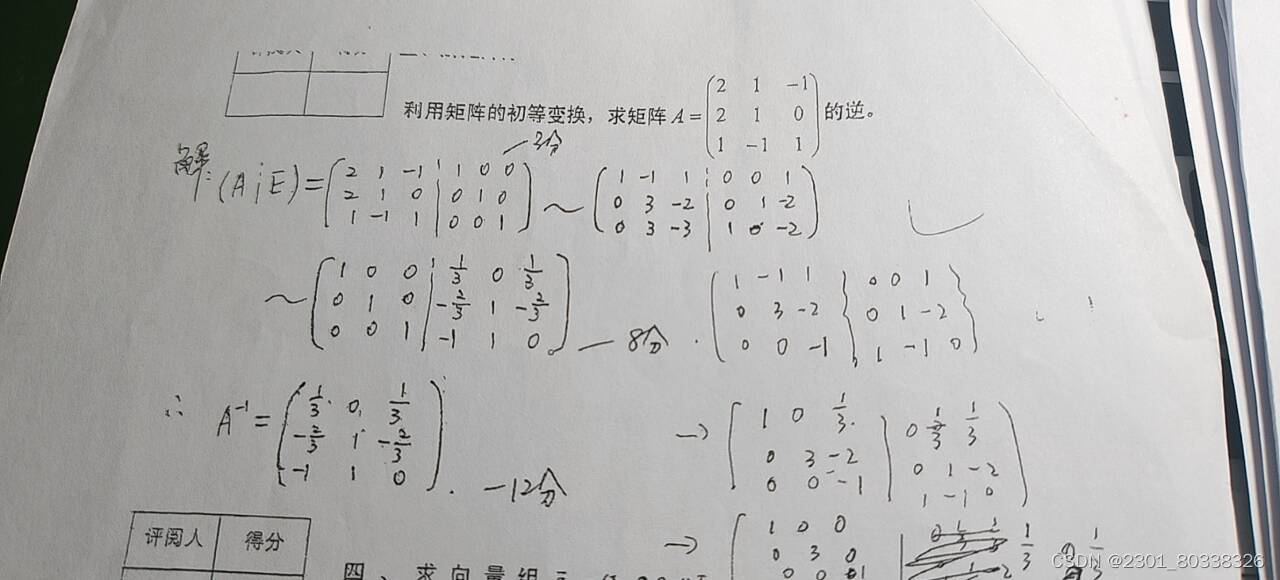 利用矩阵的初等变换，求矩阵 A = ( 2 1 -1 ; 2 1 0 ; 1 -1 1 ) 的逆。
解: (A ¦ E) = ( 2 1 -1 ¦ 1 0 0 ; 2 1 0 ¦ 0 1 0 ; 1 -1 1 ¦ 0 0 1 ) ~ ( 1 -1 1 ¦ 0 0 1 ; 0 3 -2 ¦ 0 1 -2 ; 0 3 -3 ¦ 1 0 -2 )
~ ( 1 0 0 ¦ 1/3 0 1/3 ; 0 1 0 ¦ -2/3 1 -2/3 ; 0 0 1 ¦ -1 1 0 ) — 8分
( 1 -1 1 ¦ 0 0 1 ; 0 3 -2 ¦ 0 1 -2 ; 0 0 -1 ¦ 1 -1 0 )
∴ A⁻¹ = ( 1/3 0 1/3 ; -2/3 1 -2/3 ; -1 1 0 ). — 12分
→ ( 1 0 1/3 ¦ 0 1/3 1/3 ; 0 3 -2 ¦ 0 1 -2 ; 0 0 -1 ¦ 1 -1 0 )
→ ( 1 0 0 ; 0 3 0
评阅人 得分
四、求向量组
CSDN @2301_80338326